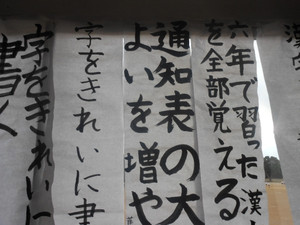 漢字
六年で習った漢
を全部覚える
通知表の大
よいを増や
字をきれいに書
字をきれいに
書く